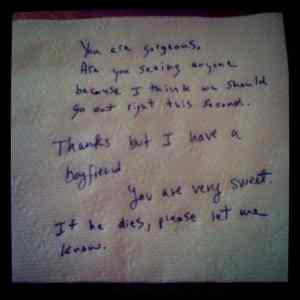 You are gorgeous.
Are you seeing anyone
because I think we should
go out right this second.
Thanks but I have a
boyfriend
You are very sweet.
If he dies, please let me
know.